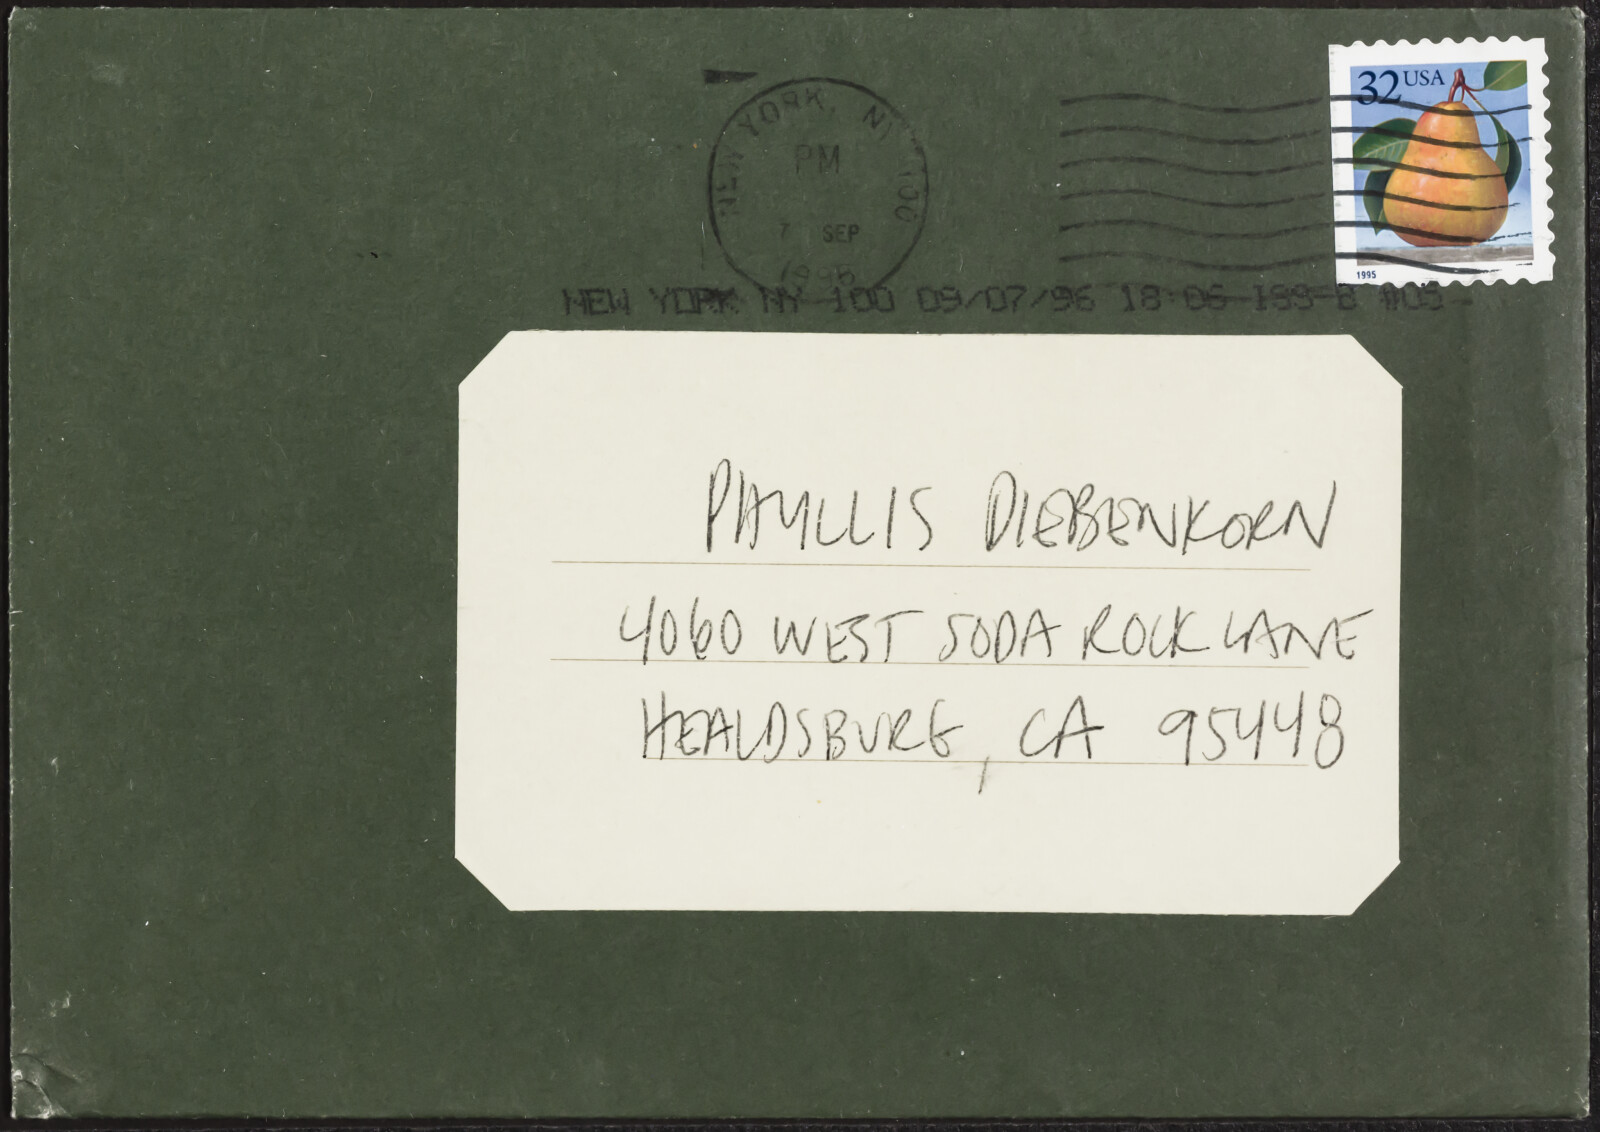 32 USA
1995
NEW YORK, NY 100
PM
7 SEP
NEW YORK NY 100 09/07/96 18:06
PHYLLIS DIEBENKORN
4060 WEST SODA ROCK LANE
HEALDSBURG, CA 95448